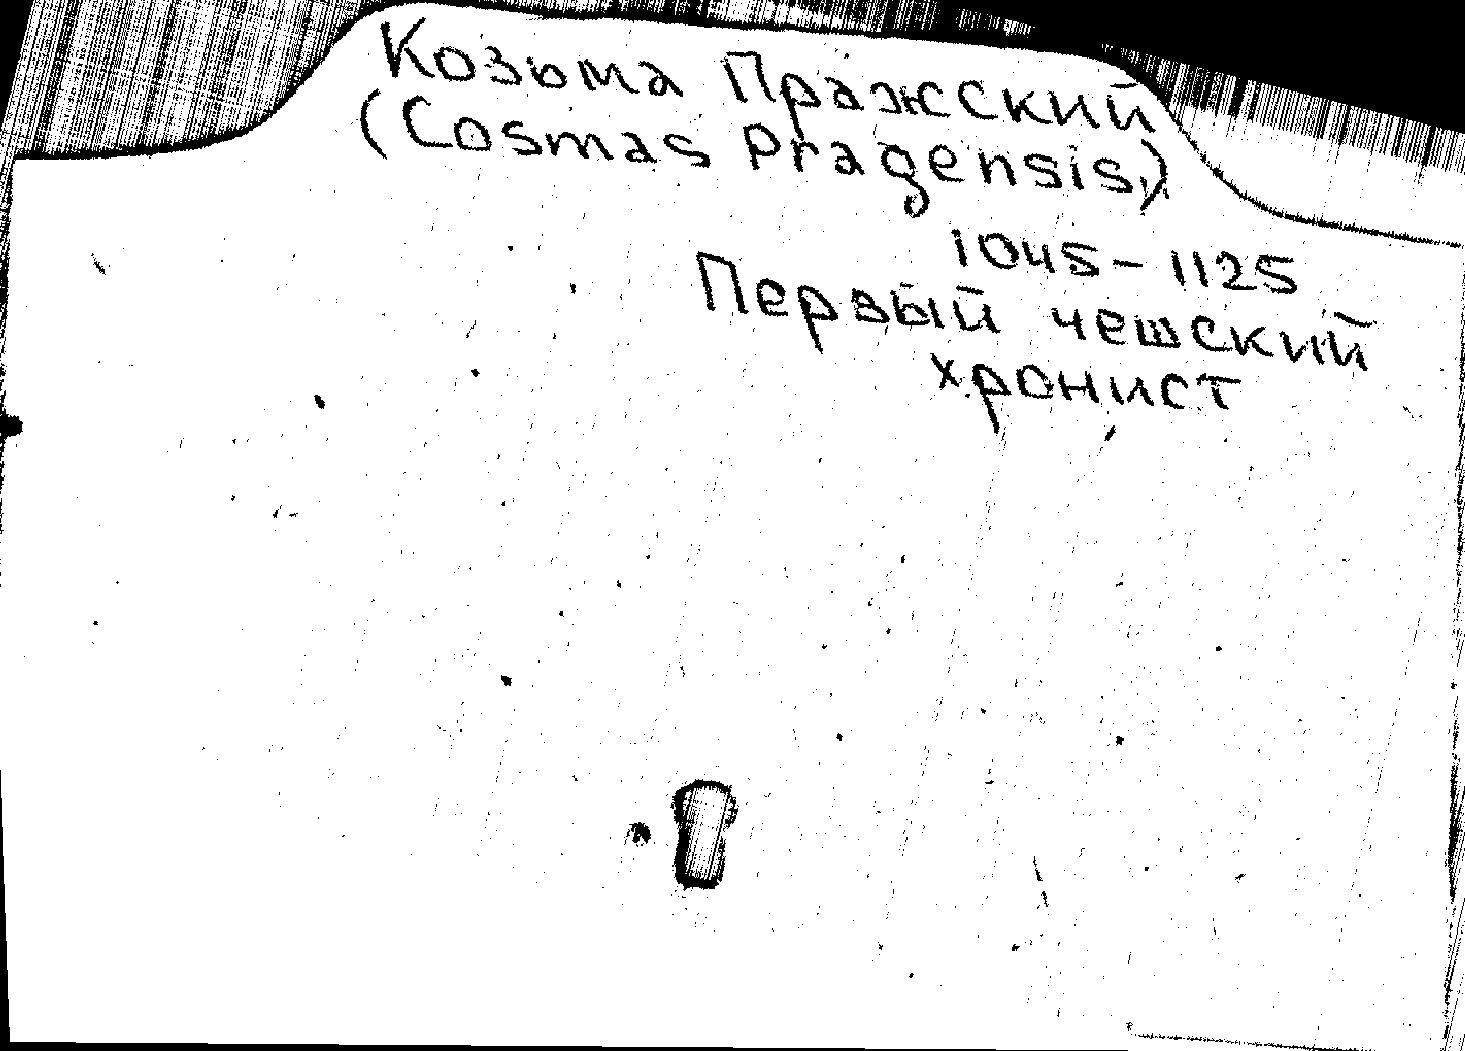 Козьма Пражский
(Cosmas Pragensis,)
1045-1125
Первый чешский
хронист